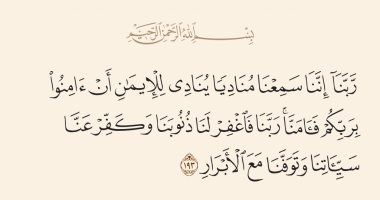 بِسْمِ ٱللَّهِ ٱلرَّحْمَٰنِ ٱلرَّحِيمِ
رَّبَّنَآ إِنَّنَا سَمِعْنَا مُنَادِيًا يُنَادِى لِلْإِيمَٰنِ أَنْ ءَامِنُوا۟
بِرَبِّكُمْ فَـَٔامَنَّا ۚ رَبَّنَا فَٱغْفِرْ لَنَا ذُنُوبَنَا وَكَفِّرْ عَنَّا
سَيِّـَٔاتِنَا وَتَوَفَّنَا مَعَ ٱلْأَبْرَارِ ١٩٣